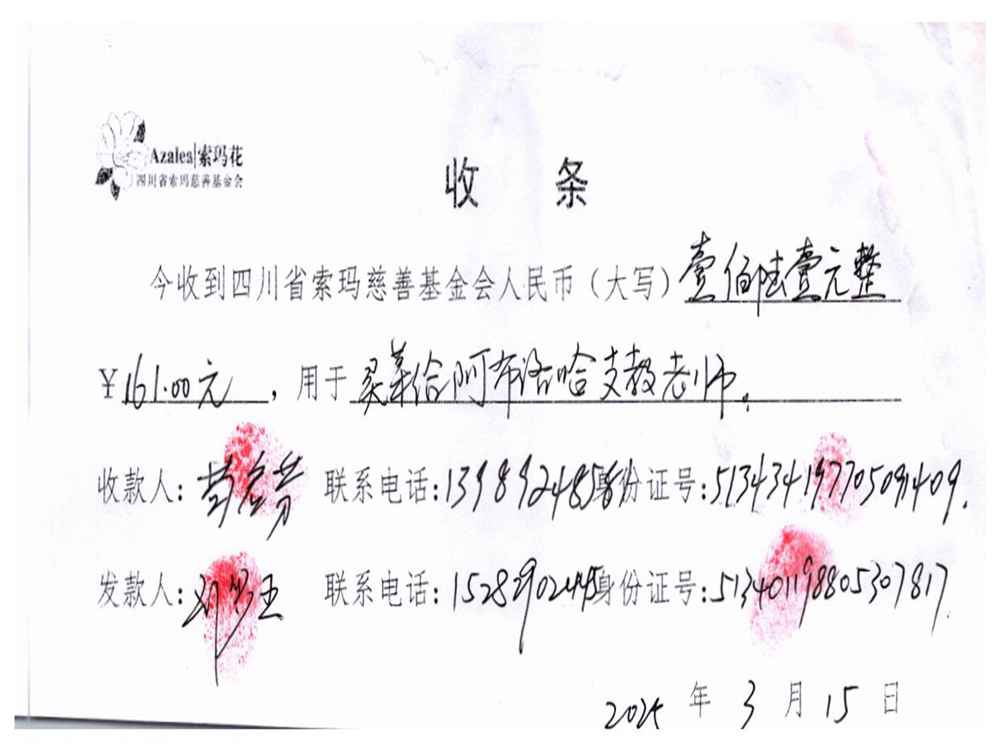 Azalea|索玛花
四川省索玛慈善基金会
收 条
今收到四川省索玛慈善基金会人民币（大写）壹佰陆壹元整
¥161.00元，用于买菜给阿布洛哈支教老师。
收款人： 联系电话:139892485 身份证号:513434197705091409.
发款人: 联系电话:1528290244 身份证号:513401198805307817.
2025年3月15日